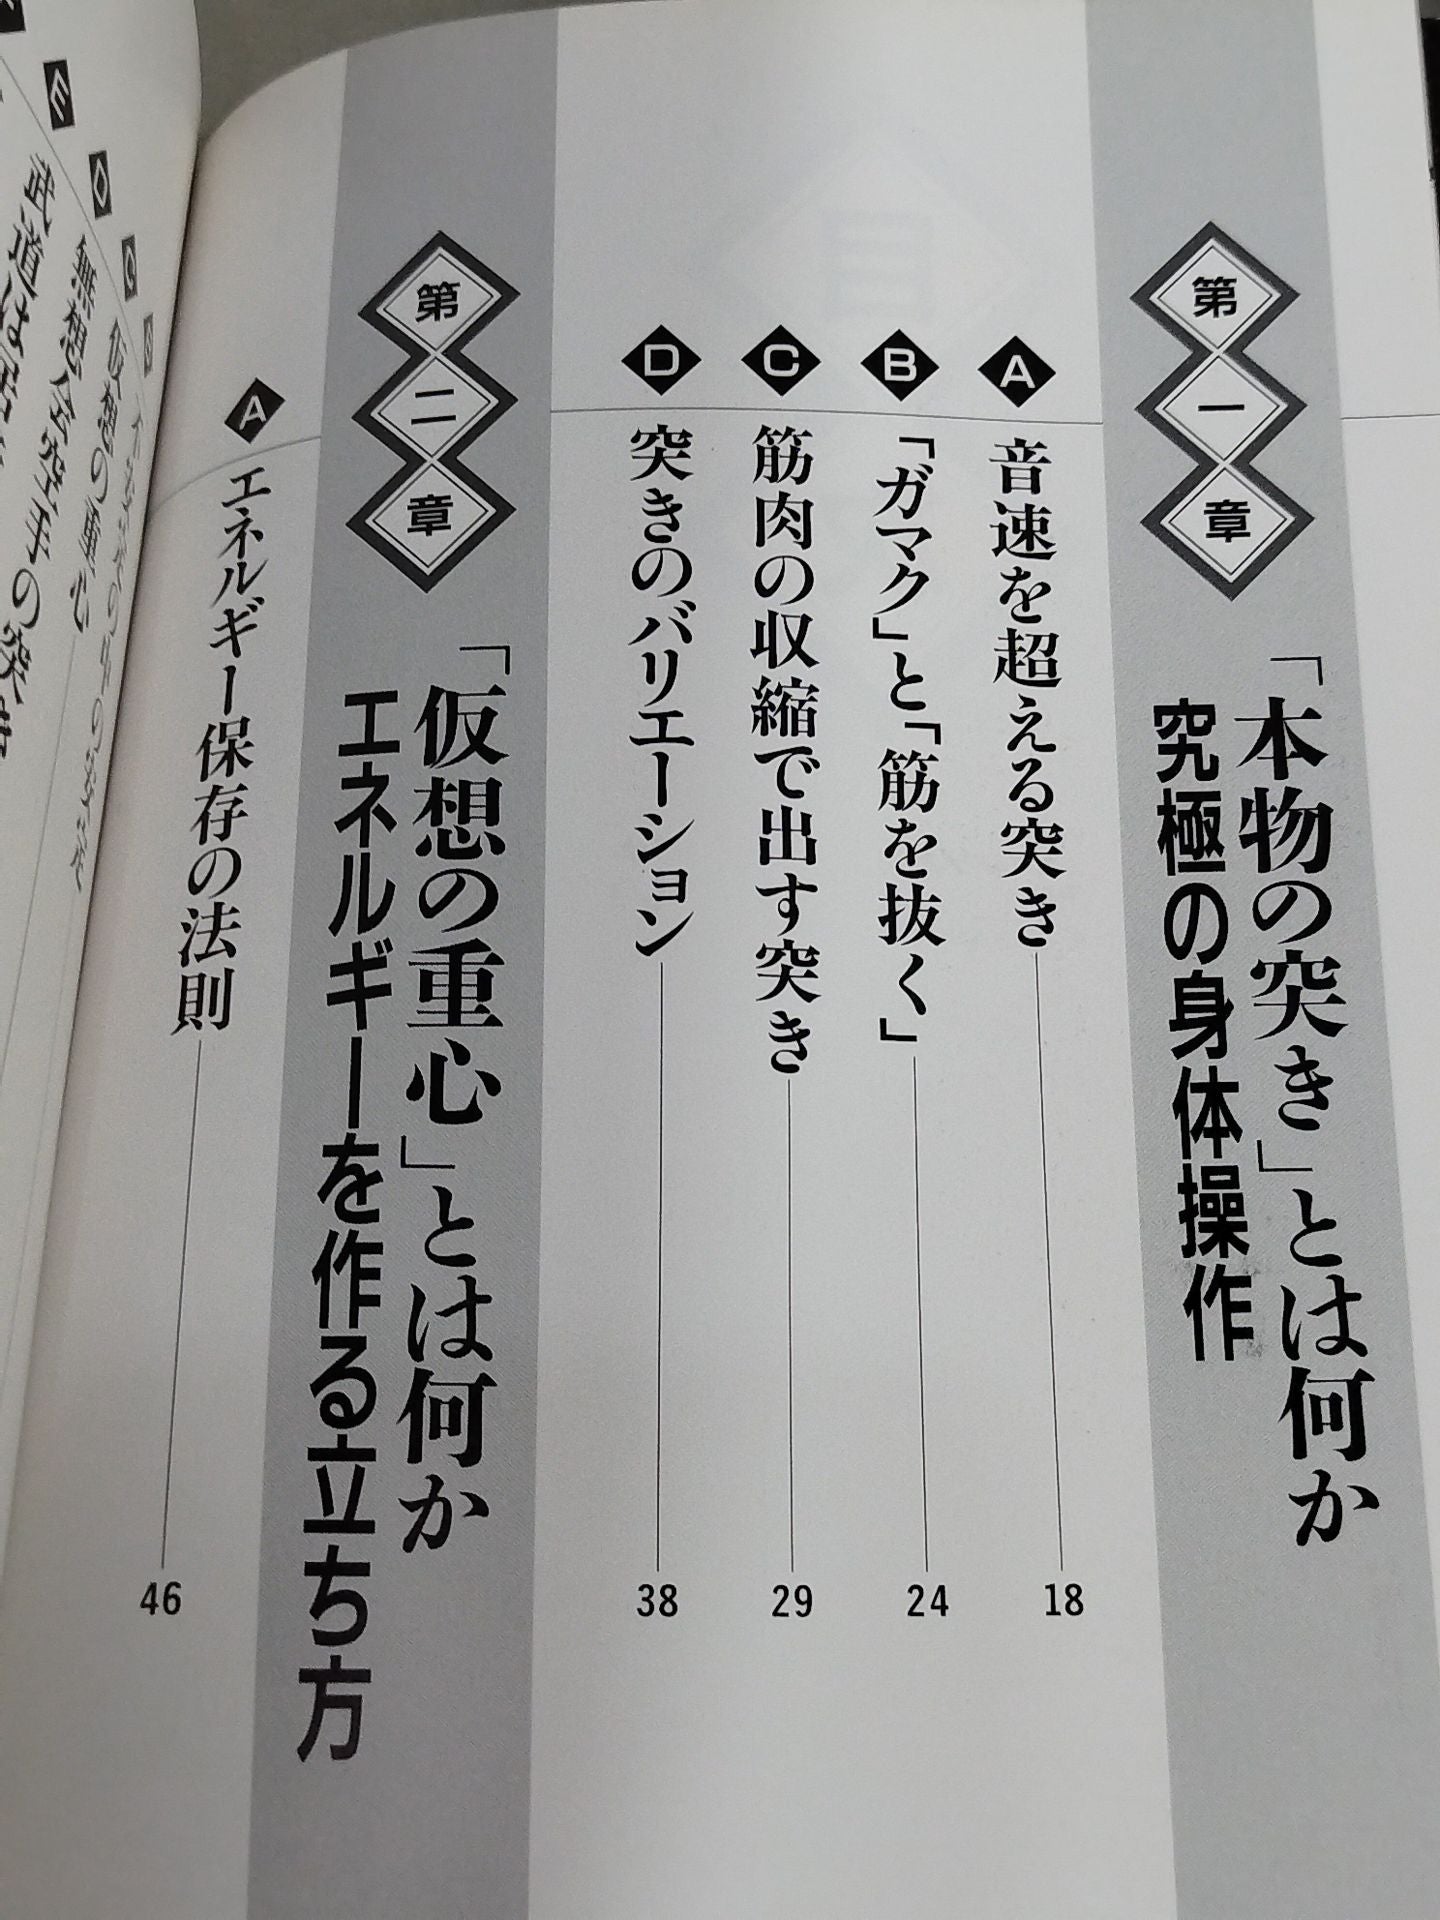 第一章
「本物の突き」とは何か
究極の身体操作
A 音速を超える突き 18
B 「ガマク」と「筋を抜く」 24
C 筋肉の収縮で出す突き 29
D 突きのバリエーション 38
第二章
「仮想の重心」とは何か
エネルギーを作る立ち方
A エネルギー保存の法則 46
C 仮想の重心
D 無想会空手の突
E 武道は